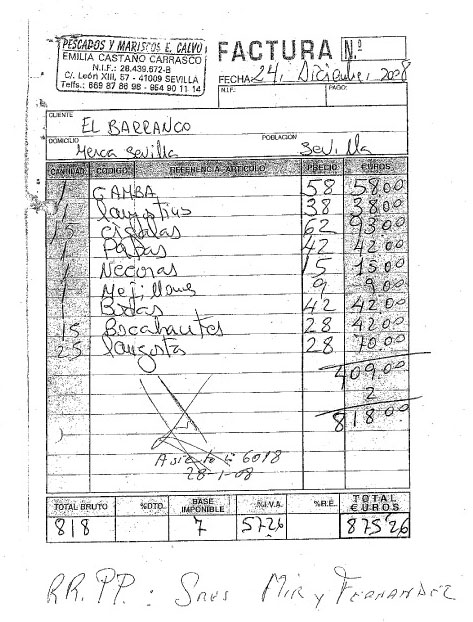 PESCADOS Y MARISCOS E. CALVO
EMILIA CASTAÑO CARRASCO
N.I.F.: 28.439.672-B
C/. León XIII, 57 - 41009 SEVILLA
Telfs.: 669 87 86 98 - 954 90 11 14
FACTURA N.º
FECHA 24, Diciembre, 2008
N.I.F.: PAGO:
CLIENTE EL BARRANCO
DOMICILIO Merca Sevilla POBLACIÓN Sevilla
CANTIDAD CODIGO REFERENCIA ARTICULO PRECIO EUROS
1 GAMBA 58 58 00
1 langostinos 38 38 00
1 5 cigalas 62 93 00
1 42 42 00
1 Necoras 15 15 00
1 Mejillones 9 9 00
1 42 42 00
1 5 28 42 00
2 5 langosta 28 70 00
409 00
2
818 00
Asiento: 6018
28-1-08
TOTAL BRUTO %DTO. BASE IMPONIBLE %I.V.A. %R.E. TOTAL EUROS
818 7 57'26 875'26
RR.PP.: Sres Mir y Fernandez